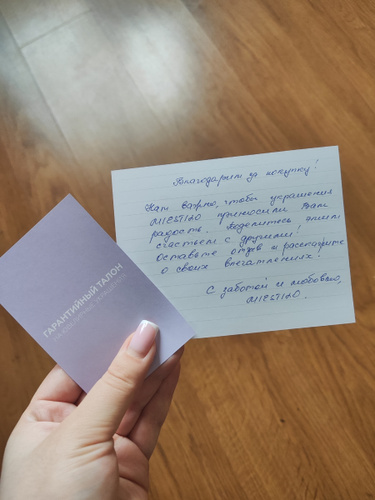 Благодарим за покупку!
Нам важно, чтобы украшения
MIESTILO приносили Вам
радость. Поделитесь этим
счастьем с другими!
Оставьте отзыв и расскажите
о своих впечатлениях!
С заботой и любовью,
MIESTILO.
ГАРАНТИЙНЫЙ ТАЛОН
НА ЮВЕЛИРНЫЕ УКРАШЕНИЯ